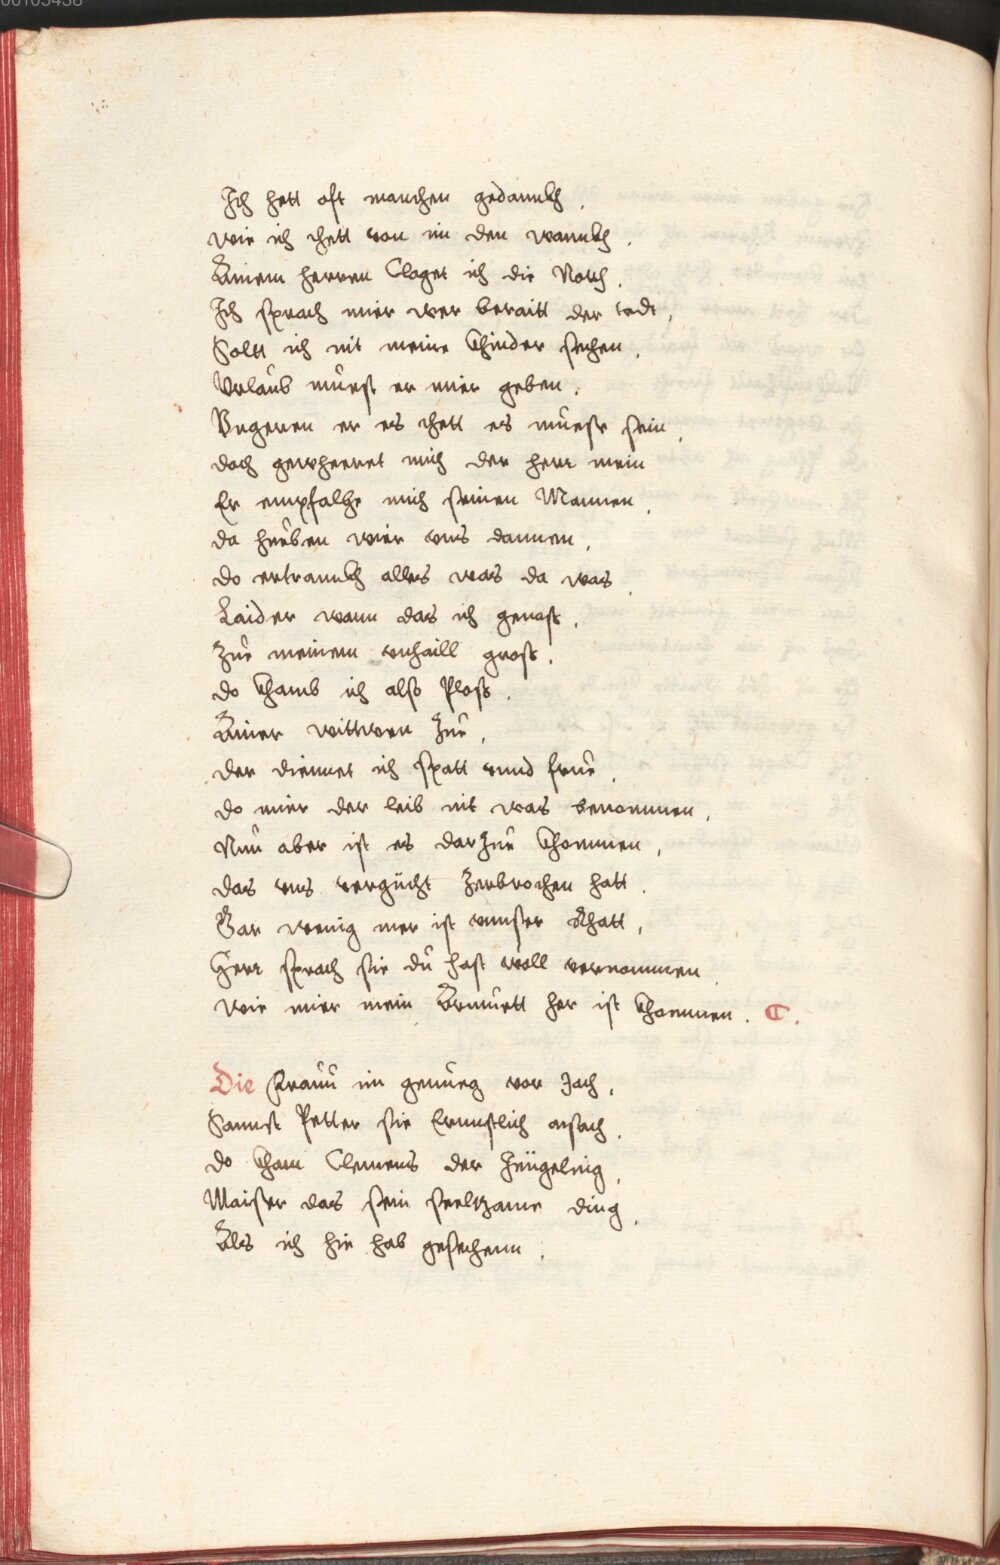 00103438
Ich hett oft manchen gedannckh .
wie ich chett von im den wannckh .
Ainem herren Claget ich die Noth .
Ich sprach mier wer beraitt der todt ,
Soltt ich nit meine Chinder sechen .
Vrlaub muest er mier geben .
Vngeren er es thett es muesse sein .
doch gewheeret mich der herr mein
Er empfalhe mich seinen Mannen .
da hueben wier vns dannen .
do ertrannckh alles was da was .
Laider wann das ich genass .
Zue meinem vnhaill gross .
do Chamb ich also Ploss .
Ainer wittwen Zue .
der diennet ich spatt vnnd frue .
do mier der leib nit was benommen .
Nun aber ist es darzue Chommen ,
das vns vergücht zerbrochen hatt .
Gar wenig mer ist vnnser Rhatt ,
Herr sprach sie du hast woll vernommen
wie mier mein Armuett her ist Chommen . C .
Die Frauu im genueg vor Jach ,
Sannct Petter sie Ernnstlich ansach .
do Cham Clemens der Jüngeling ,
Maister das sein seeltzame ding .
Als ich hie hab gesechenn .